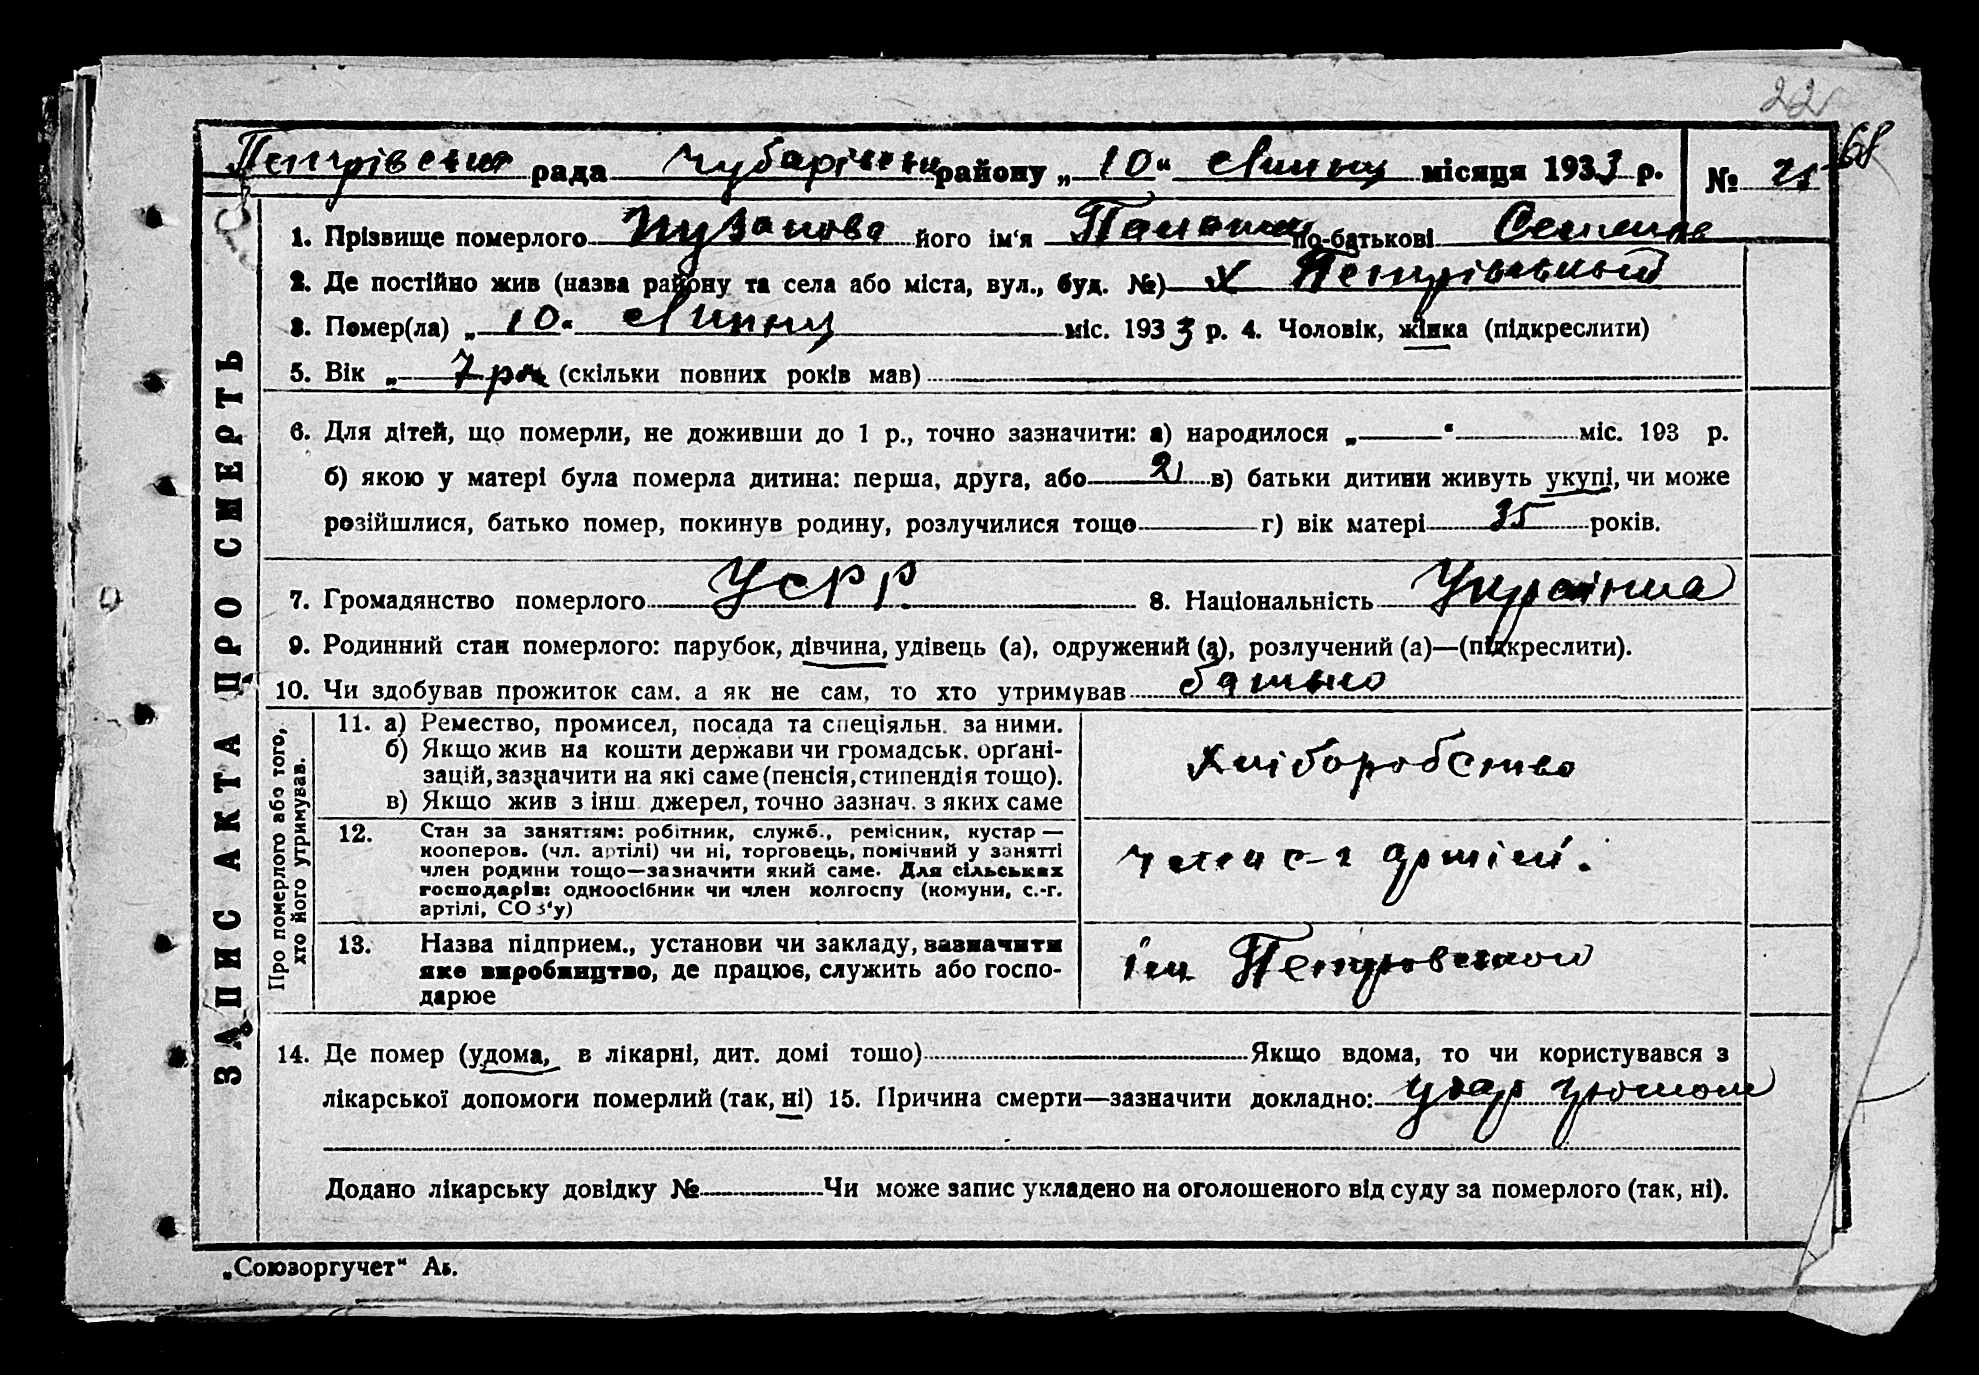 22
68
Петрівська рада Чубарівськ району „ 10 “ Липня місяця 1933 р. № 21
1. Прізвище померлого Пузанова його ім'я по-батькові Семенов
2. Де постійно жив (назва району та села або міста, вул., буд. №) х Петрівський
3. Помер(ла) „ 10 “ Липня міс. 1933 р. 4. Чоловік, жінка (підкреслити)
5. Вік „ 7 рок (скільки повних років мав)
6. Для дітей, що померли, не доживши до 1 р., точно зазначити: а) народилося „ “ міс. 193 р.
б) якою у матері була померла дитина: перша, друга, або 2 в) батьки дитини живуть укупі, чи може
розійшлися, батько помер, покинув родину, розлучилися тощо г) вік матері 35 років.
7. Громадянство померлого УСРР 8. Національність Українка
9. Родинний стан померлого: парубок, дівчина, удівець (а), одружений (а), розлучений (а)—(підкреслити).
10. Чи здобував прожиток сам, а як не сам, то хто утримував батько
ЗАПИС АКТА ПРО СМЕРТЬ
Про померлого або того,
хто його утримував.
11. а) Ремество, промисел, посада та спеціяльн. за ними.
б) Якщо жив на кошти держави чи громадськ. орґані-
зацій, зазначити на які саме (пенсія, стипендія тощо).
в) Якщо жив з інш джерел, точно зазнач. з яких саме
Хліборобство
12. Стан за заняттям: робітник, служб., ремісник, кустар —
кооперов. (чл. артілі) чи ні, торговець, помічний у занятті
член родини тощо—зазначити який саме. Для сільських
господарів: одноосібник чи член колгоспу (комуни, с.-г.
артілі, СОЗ'у)
член с-г артілі.
13. Назва підприєм., установи чи закладу, зазначити
яке виробництво, де працює, служить або госпо-
дарює
ім Петровського
14. Де помер (удома, в лікарні, дит. домі тощо) Якщо вдома, то чи користувався з
лікарської допомоги померлий (так, ні) 15. Причина смерти—зазначити докладно: удар
Додано лікарську довідку № Чи може запис укладено на оголошеного від суду за померлого (так, ні).
„Союзоргучет“ Аь.